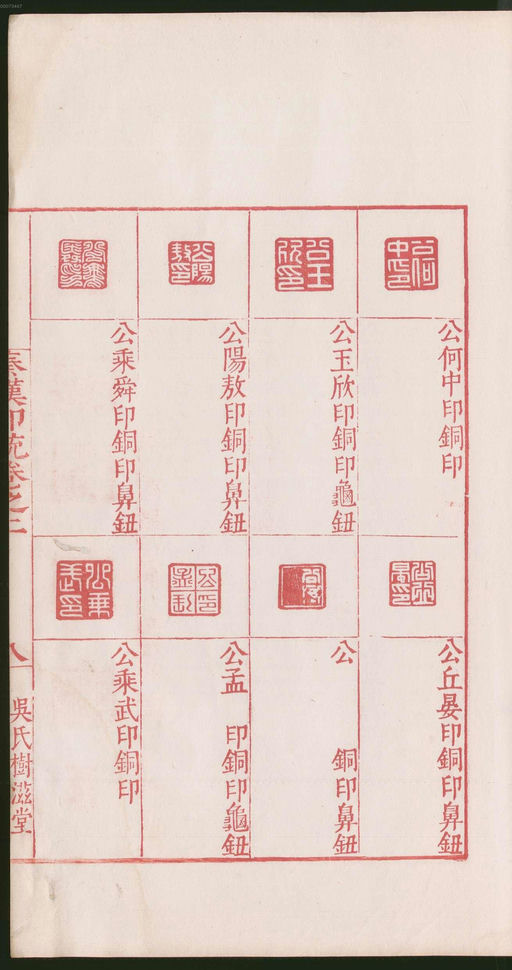 00073447
公何中印銅印
公玉欣印銅印龜鈕
公陽敖印銅印鼻鈕
公乘舜印銅印鼻鈕
公丘晏印銅印鼻鈕
公 銅印鼻鈕
公孟 印銅印龜鈕
公乘武印銅印
秦漢印統卷之二
八
吳氏樹滋堂